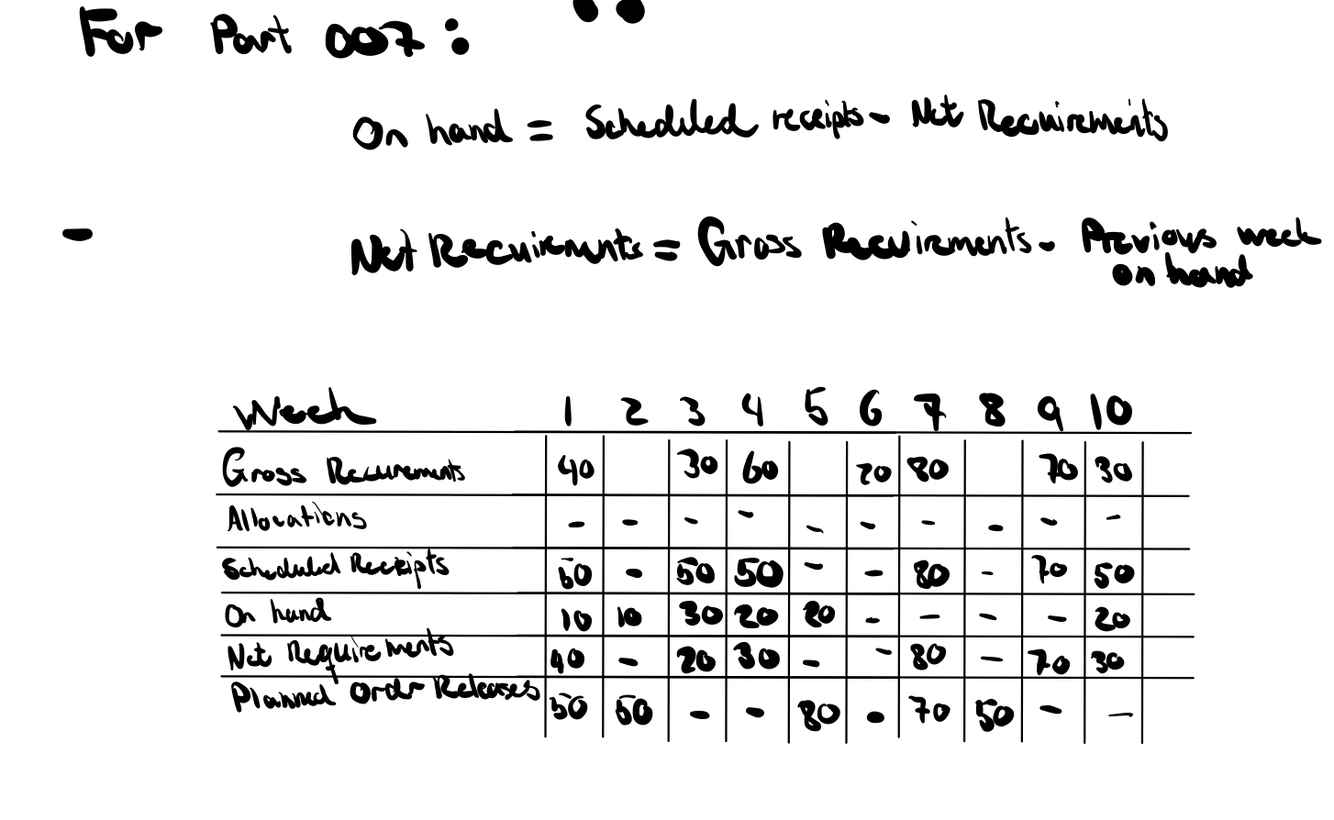 For Part 007:
On hand = Scheduled receipts - Net Requirements
- Net Requirements = Gross Requirements - Previous week
on hand
Week 1 2 3 4 5 6 7 8 9 10
Gross Requirements 40 30 60 20 80 70 30
Allocations - - - - - - - - - -
Scheduled Receipts 50 - 50 50 - - 80 - 70 50
On hand 10 10 30 20 20 - - - - 20
Net Requirements 40 - 20 30 - - 80 - 70 30
Planned Order Releases 50 50 - - 80 - 70 50 - -